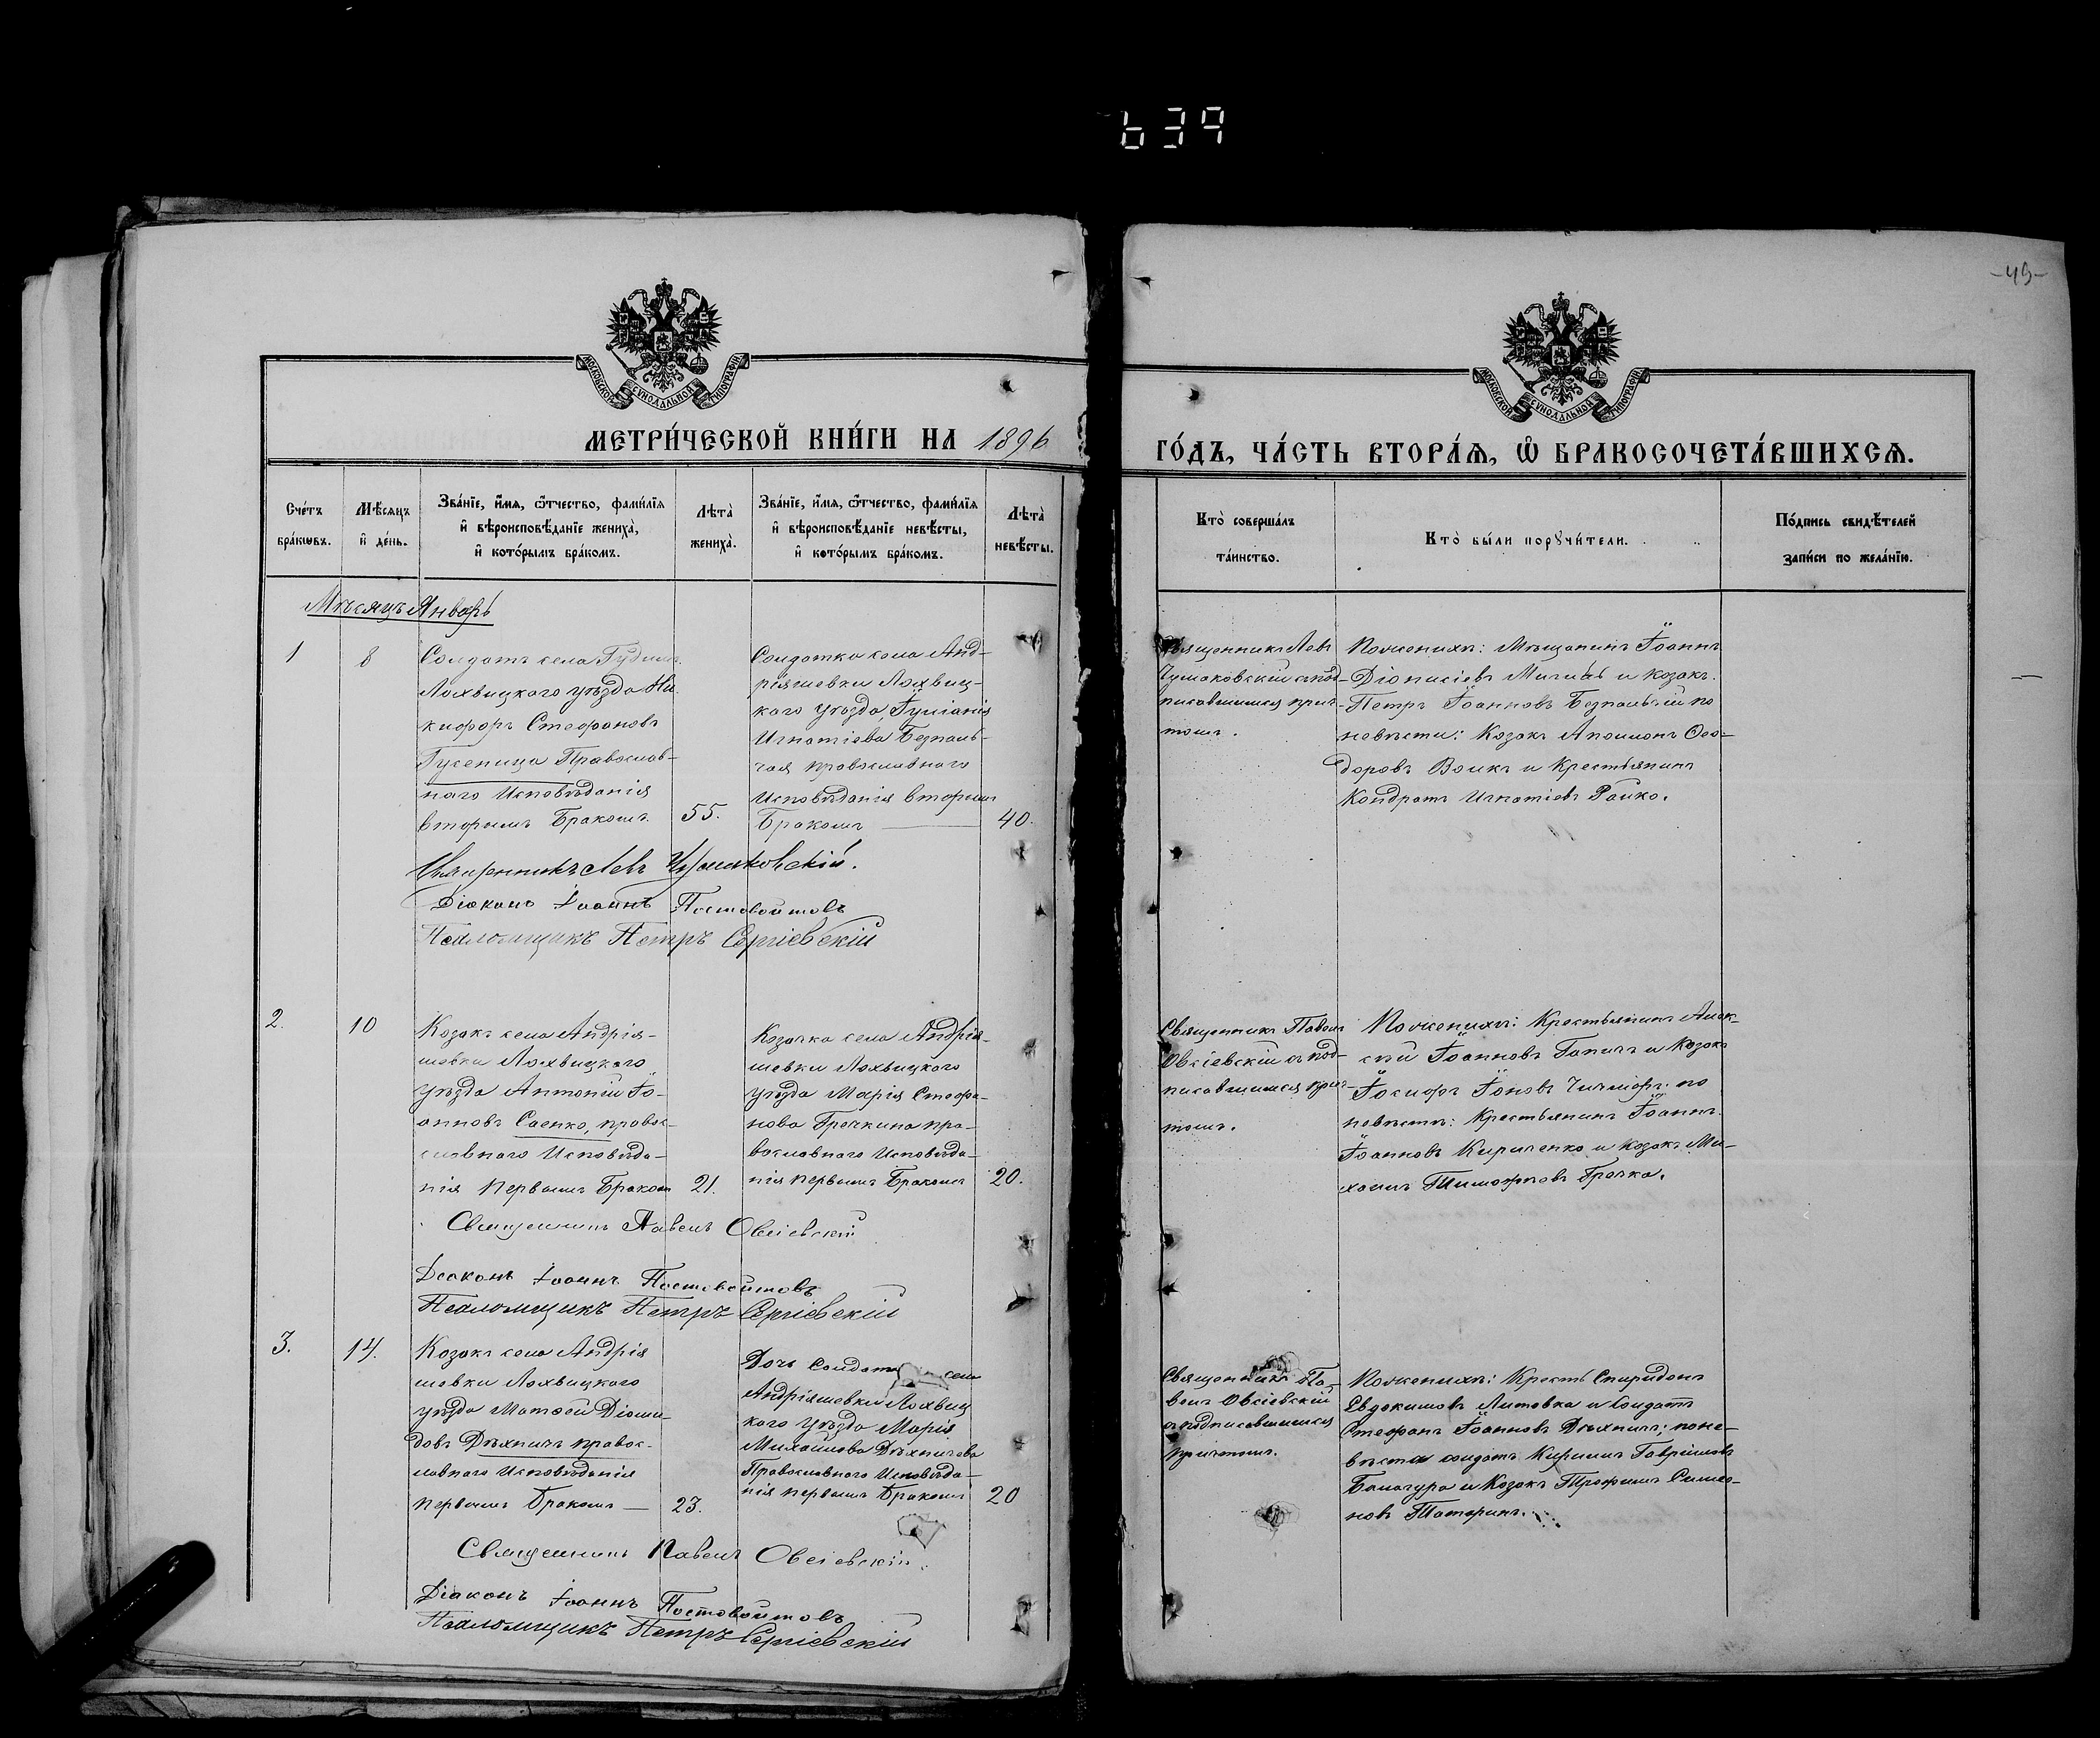 639
-49-
МОСКОВСКОЙ СѴНОДАЛЬНОЙ ТИПОГРАФІИ
МОСКОВСКОЙ СѴНОДАЛЬНОЙ ТИПОГРАФІИ
МЕТРИ́ЧЕСКОЙ КНИ́ГИ НА 1896
ГО́ДЪ, ЧА́СТЬ ВТОРА́Ѧ, Ѽ БРАКОСОЧЕТА́ВШИХСѦ.
Сче́тъ
бра́кѡвъ.
Мѣ́сѧцъ
и҆ де́нь.
Зва́нїе, и҆́мѧ, ѻ҆́тчество, фами́лїѧ
и҆ вѣроисповѣ́данїе жениха̀,
и҆ кото́рымъ бра́комъ.
Лѣта̀
жениха̀.
Зва́нїе, и҆́мѧ, ѻ҆́тчество, фами́лїѧ
и҆ вѣроисповѣ́данїе невѣ́сты,
и҆ кото́рымъ бра́комъ.
Лѣта̀
невѣ́сты.
Кто̀ соверша́лъ
та́инство.
Кто̀ бы́ли порꙋчи́тели.
По́дпись свидѣ́телей
за́писи по жела́нїю.
Мѣсяцъ Январь
1
8
Солдатъ села
Лохвицкаго уѣзда Ни
кифоръ Стефановъ
Гусеница Православ-
наго Исповѣданія
вторымъ Бракомъ
55.
Солдатка села Анд-
ріяшевки Лохвиц-
каго уѣзда, Іуліанія
Игнатіева Безпаль-
чая православнаго
Исповѣданія вторымъ
Бракомъ
40.
Священникъ Левъ
Чумаковскій съ под-
писавшимся прич-
томъ.
По женихѣ: Мѣщанинъ Іоаннъ
Діонисіевъ и козакъ
Петръ Іоанновъ Безпальчій по
невѣсти: Козакъ Аполлонъ Ѳео-
доровъ Волкъ и Крестьянинъ
Кондратъ Игнатіевъ Райко.
Священникъ Левъ Чумаковскій.
Діаконъ Іоаннъ Постовойтовъ
Псаломщикъ Петръ Сергіевскій
2.
10
Козакъ села Андрія-
шевки Лохвицкаго
уѣзда Антоній Іо-
анновъ Саенко, правос-
славнаго Исповѣда-
нія первымъ Бракомъ
21.
Козачка села Андрія-
шевки Лохвицкаго
уѣзда Марія Стефа-
нова Гречкина пра-
вославнаго Исповѣда-
нія первымъ Бракомъ
20.
Священникъ Павелъ
Овсіевскій съ под-
писавшимся прич-
томъ.
По женихѣ: Крестьянинъ Алек-
сѣй Іоанновъ Ганичъ и Козакъ
Іосифъ Іоновъ по
невѣстѣ: Крестьянинъ Іоаннъ
Іоанновъ Кириченко и козакъ Ми-
хаилъ Тимофѣевъ Гречка.
Священникъ Павелъ Овсіевскій
Діаконъ Іоаннъ Постовойтовъ
Псаломщикъ Петръ Сергіевскій
3.
14.
Козакъ села Андрія
шевки Лохвицкаго
уѣзда Матѳей Діоми-
довъ Дѣхничъ правос-
лавнаго Исповѣданія
первымъ Бракомъ
23.
Дочь села
Андріяшевки Лохвиц
каго уѣзда Марія
Михайлова Дѣхничева
Православнаго Исповѣда-
нія первымъ Бракомъ
20
Священникъ Па-
велъ Овсіевскій
съ подписавшимся
причтомъ.
По женихѣ: Крестья Спиридонъ
Евдокимовъ Литовка и Солдатъ
Стефанъ Іоанновъ Дѣхничъ; по не-
вѣстѣ солдатъ Кириллъ Гавріиловъ
Балагура и Козакъ Трофимъ Симео-
новъ Татаринъ.
Священникъ Павелъ Овсіевскій
Діаконъ Іоаннъ Постовойтовъ
Псаломщикъ Петръ Сергіевскій